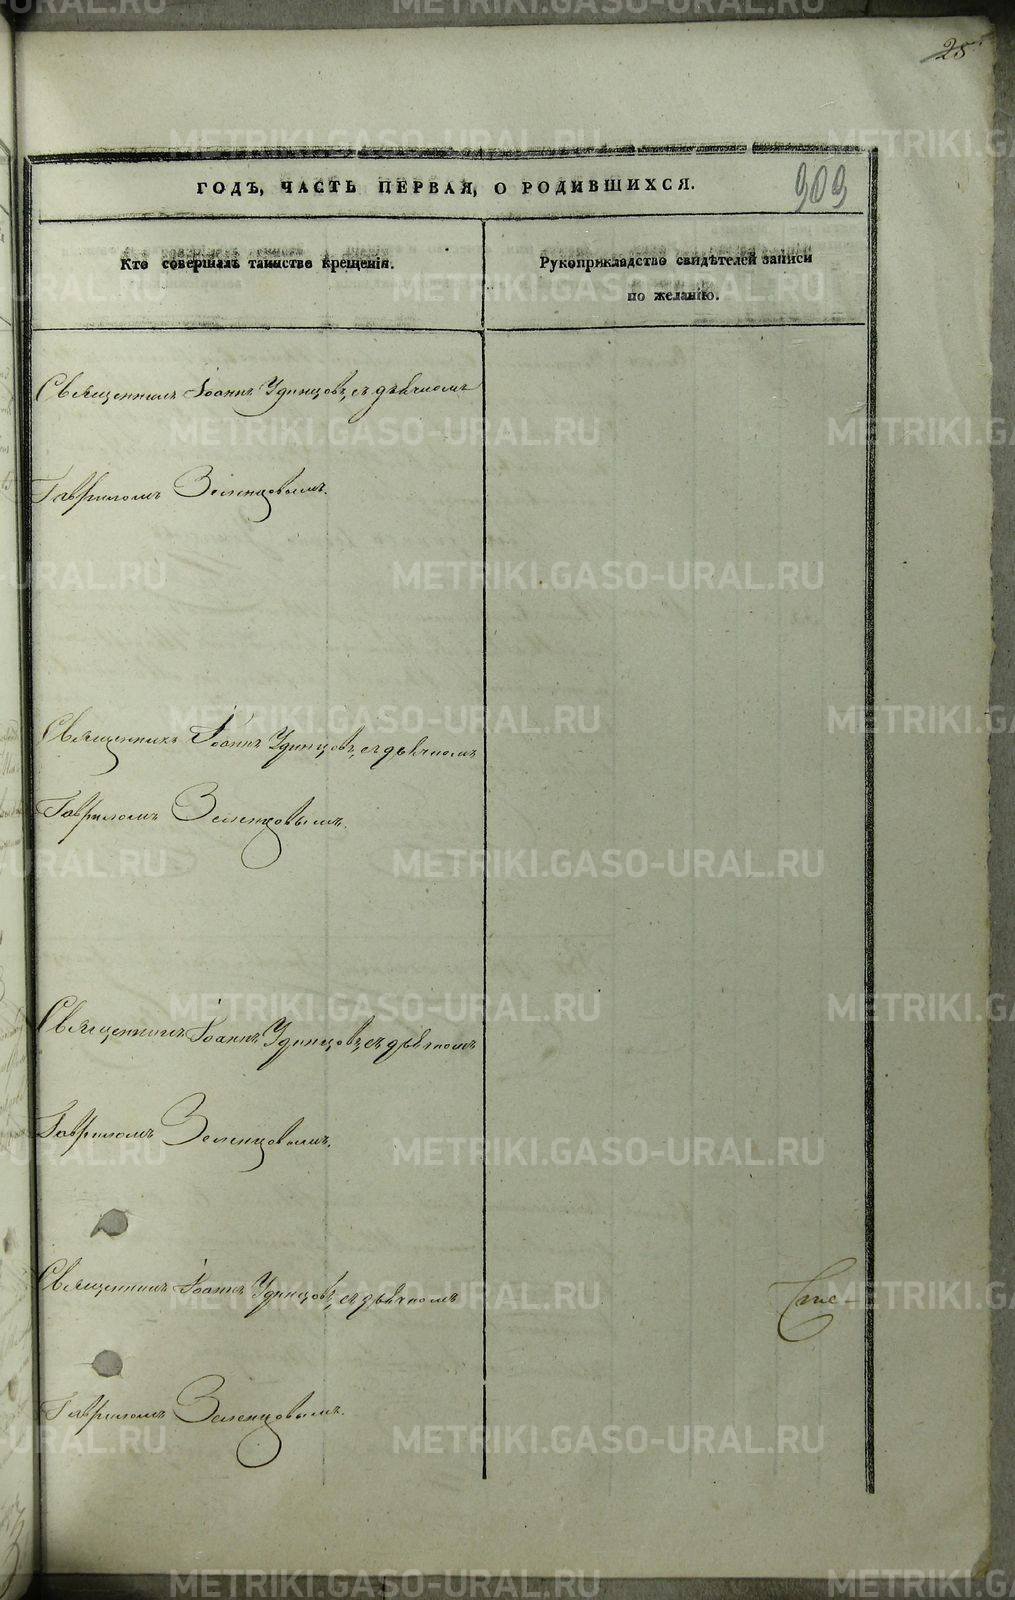 25
ГОДЪ, ЧАСТЬ ПЕРВАЯ, О РОДИВШИХСЯ.
909
Кто совершалъ таинство крещенія.
Рукоприкладство свидѣтелей записи
по желанію.
Священникъ Іоаннъ Удинцовъ, съ дьячкомъ
Гавриломъ Зеленцовымъ.
Священникъ Іоаннъ Удинцовъ, съ дьячкомъ
Гавриломъ Зеленцовымъ.
Священникъ Іоаннъ Удинцовъ, съ дьячкомъ
Гавриломъ Зеленцовымъ.
Священникъ Іоаннъ Удинцовъ, съ дьячкомъ
Гавриломъ Зеленцовымъ.
METRIKI.GASO-URAL.RU